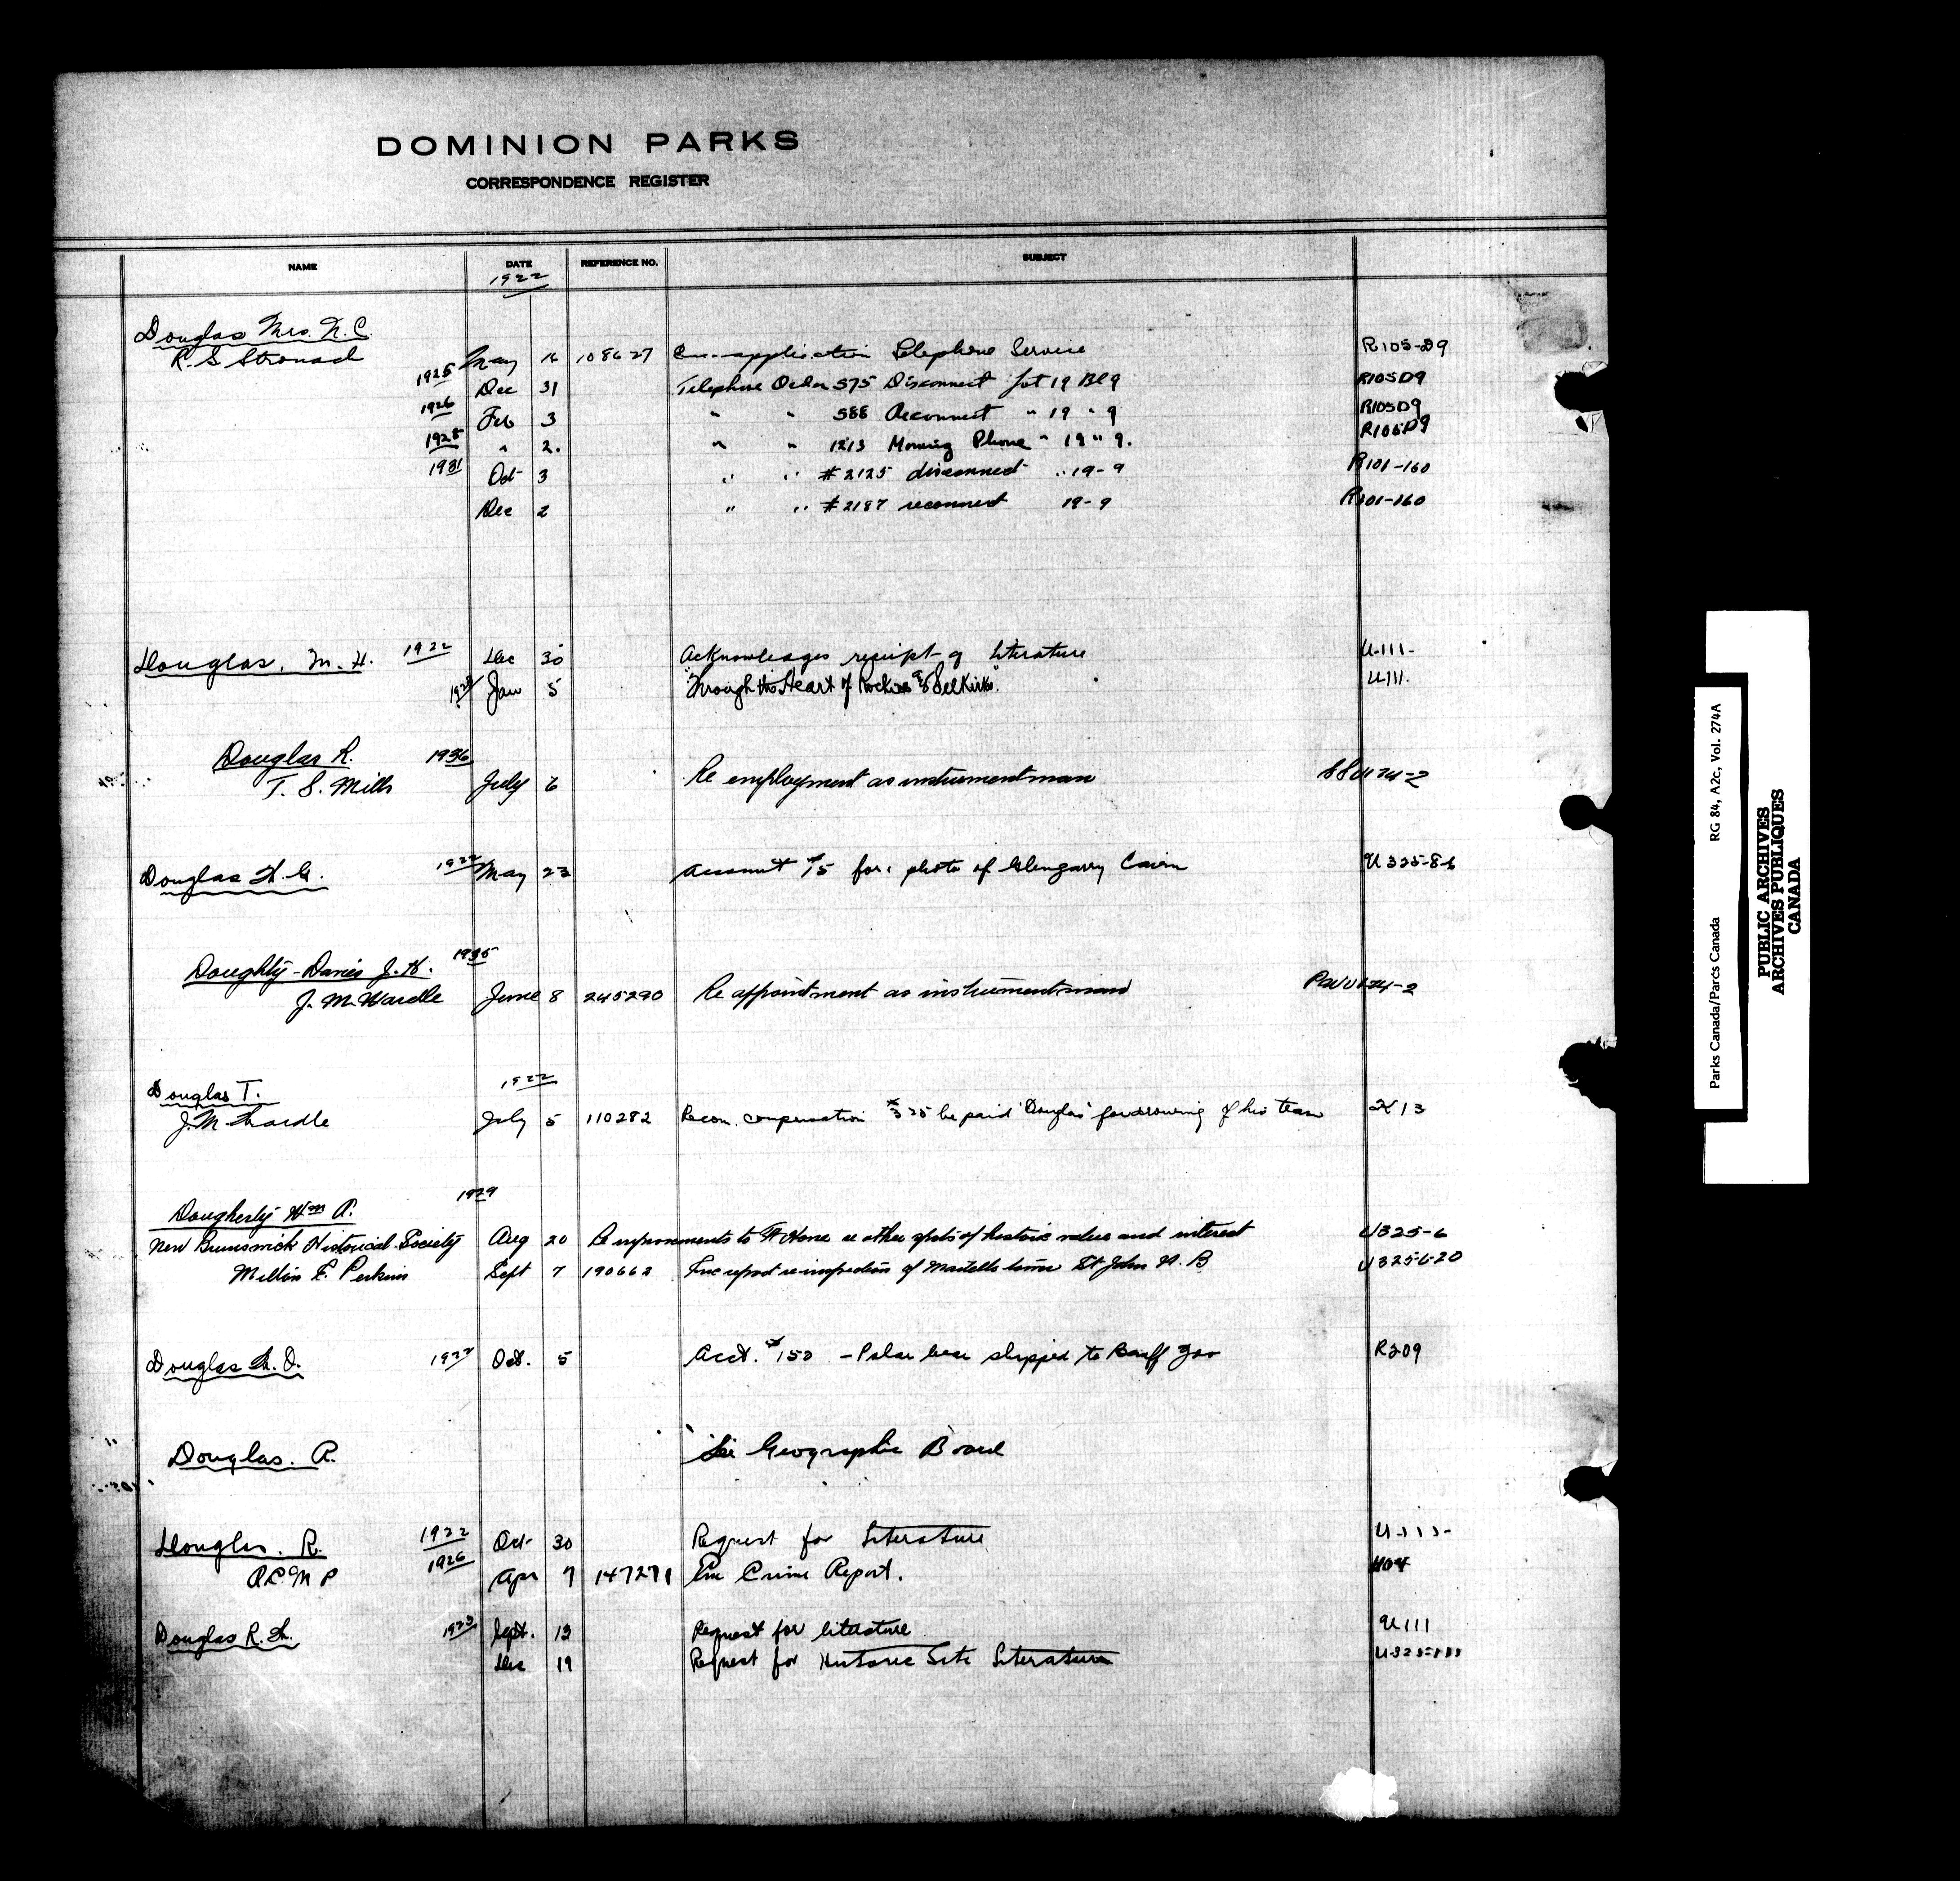 DOMINION PARKS
CORRESPONDENCE REGISTER
NAME DATE REFERENCE NO. SUBJECT
1922
Douglas Mrs. N. C.
R. S. Stronach May 16 108627 Enc. application Telephone Service R105-D9
1925 Dec 31 Telephone Order 575 Disconnect Lot 19 Bl 9 R105D9
1926 Feb 3 " " 588 Reconnect " 19 " 9 R105D9
1928 " 2. " " 1213 Moving Phone " 19 " 9. R105D9
1931 Oct 3 " " #2125 disconnect " 19-9 R101-160
Dec 2 " " #2187 reconnect 19-9 R101-160
Douglas. M. H. 1922 Dec 30 Acknowledges receipt of literature U-111-
Jan 5 "Through the Heart of Rockies & Selkirks". U-111.
Douglas R. 1936
T. S. Mills July 6 Re employment as instrumentman
Douglas H. G. 1922 May 23 Account $15 for photo of Glengarry Cairn U325-86
Doughty-Davies J. H. 1935
J. M. Wardle June 8 245290 Re appointment as instrumentman
Douglas T. 1922
J. M. Wardle July 5 110282 Recom. compensation $325 be paid "Douglas" for drowning of his team
Dougherty Wm A. 1929
New Brunswick Historical Society Aug 20 Re improvements to Ft Howe or other spots of historic value and interest U325-6
Milton F. Perkins Sept 7 190662 Enc report re inspection of Martello tower St John N. B U325-6-20
Douglas Oct. 5 Acct. $150 - Polar bear shipped to Banff Zoo R209
Douglas. A. See Geographic Board
Douglas. R. 1922 Oct- 30 Request for Literature U-111-
RCMP 1926 Apr 7 147271 Enc Crime Report.
Douglas R. 1923 Sept. 13 Request for literature U111
Dec 19 Request for Historic Site Literature U-325-111
Parks Canada/Parcs Canada RG 84, A2c, Vol. 274A
PUBLIC ARCHIVES
ARCHIVES PUBLIQUES
CANADA